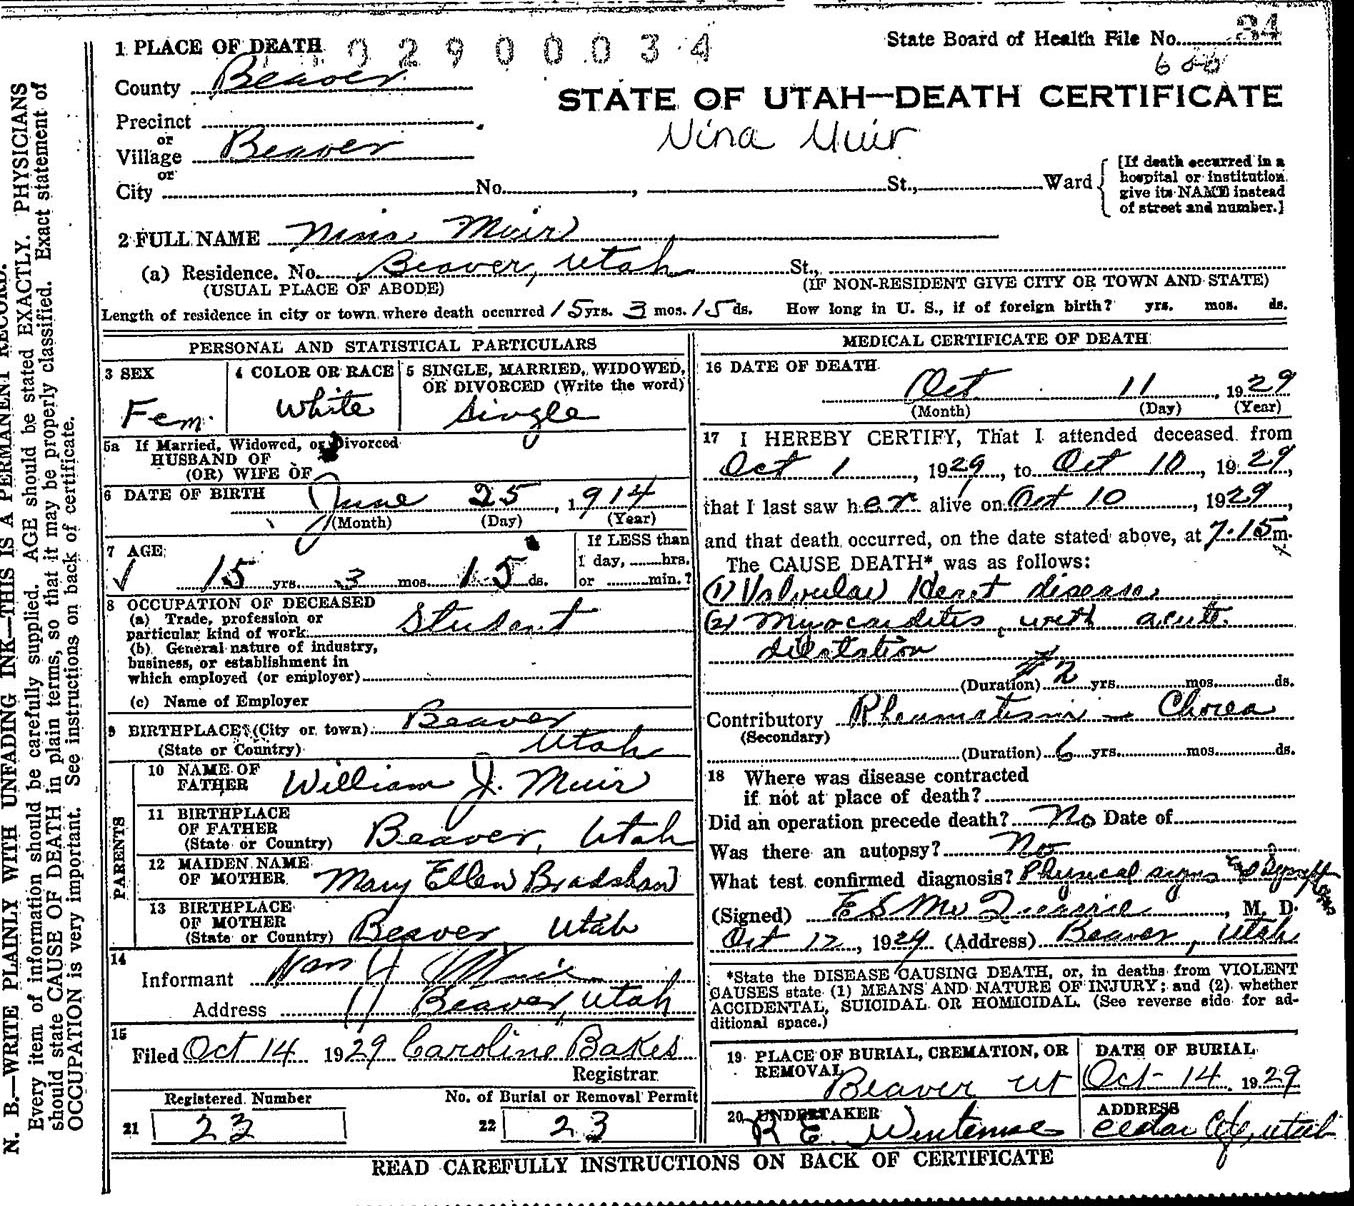 N. B.—WRITE PLAINLY WITH UNFADING INK—THIS IS A PERMANENT RECORD.
Every item of information should be carefully supplied. AGE should be stated EXACTLY. PHYSICIANS
should state CAUSE OF DEATH in plain terms, so that it may be properly classified. Exact statement of
OCCUPATION is very important. See instructions on back of certificate.
State Board of Health File No. 34
02900034
600
1 PLACE OF DEATH
County Beaver
STATE OF UTAH—DEATH CERTIFICATE
Nina Muir
Precinct
or
Village Beaver
or
City No. , St., Ward
[If death occurred in a
hospital or institution
give its NAME instead
of street and number.]
2 FULL NAME Nina Muir
(a) Residence. No. Beaver, Utah St.,
(USUAL PLACE OF ABODE) (IF NON-RESIDENT GIVE CITY OR TOWN AND STATE)
Length of residence in city or town where death occurred 15 yrs. 3 mos. 15 ds. How long in U. S., if of foreign birth? yrs. mos. ds.
PERSONAL AND STATISTICAL PARTICULARS
3 SEX
Fem.
4 COLOR OR RACE
White
5 SINGLE, MARRIED, WIDOWED,
OR DIVORCED (Write the word)
Single
5a If Married, Widowed, or Divorced
HUSBAND OF
(OR) WIFE OF
6 DATE OF BIRTH June 25, 1914
(Month) (Day) (Year)
7 AGE
15 yrs. 3 mos. 15 ds.
If LESS than
1 day, hrs.
or min.?
8 OCCUPATION OF DECEASED
(a) Trade, profession or
particular kind of work Student
(b) General nature of industry,
business, or establishment in
which employed (or employer)
(c) Name of Employer
9 BIRTHPLACE (City or town) Beaver
(State or Country) Utah
PARENTS
10 NAME OF
FATHER William J. Muir
11 BIRTHPLACE
OF FATHER
(State or Country) Beaver, Utah
12 MAIDEN NAME
OF MOTHER Mary Ellen Bradshaw
13 BIRTHPLACE
OF MOTHER
(State or Country) Beaver Utah
14
Informant Muir
Address Beaver, Utah
15
Filed Oct 14 1929 Caroline Bakes
Registrar
Registered Number
21 23
No. of Burial or Removal Permit
22 23
MEDICAL CERTIFICATE OF DEATH
16 DATE OF DEATH
Oct 11, 1929
(Month) (Day) (Year)
17 I HEREBY CERTIFY, That I attended deceased from
Oct 1, 1929, to Oct 10, 1929,
that I last saw her alive on Oct 10, 1929,
and that death occurred, on the date stated above, at 7.15 m.
The CAUSE DEATH* was as follows:
(1) Valvular Heart disease
(2) Myocarditis, with acute
dilatation
(Duration) 2 yrs. mos. ds.
Contributory Rheumatism — Chorea
(Secondary)
(Duration) 6 yrs. mos. ds.
18 Where was disease contracted
if not at place of death?
Did an operation precede death? No Date of
Was there an autopsy? No
What test confirmed diagnosis? Physical signs
(Signed) E S McQuarrie, M. D.
Oct 12, 1929 (Address) Beaver, Utah
*State the DISEASE CAUSING DEATH, or, in deaths from VIOLENT
CAUSES state (1) MEANS AND NATURE OF INJURY; and (2) whether
ACCIDENTAL, SUICIDAL OR HOMICIDAL. (See reverse side for ad-
ditional space.)
19 PLACE OF BURIAL, CREMATION, OR
REMOVAL
Beaver Ut
DATE OF BURIAL
Oct 14 1929
20 UNDERTAKER
R E.
ADDRESS
Cedar City, Utah
READ CAREFULLY INSTRUCTIONS ON BACK OF CERTIFICATE